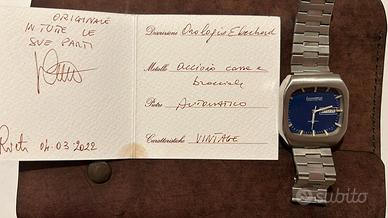 ORIGINALE
IN TUTTE LE
SUE PARTI
Rieti 04.03.2022
Descrizione Orologio Eberhard
Metallo acciaio cassa e
bracciale
Pietre AUTOMATICO
Caratteristiche VINTAGE
subito